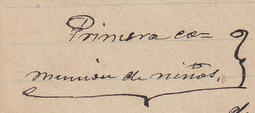 Primera co=
munion de niños.